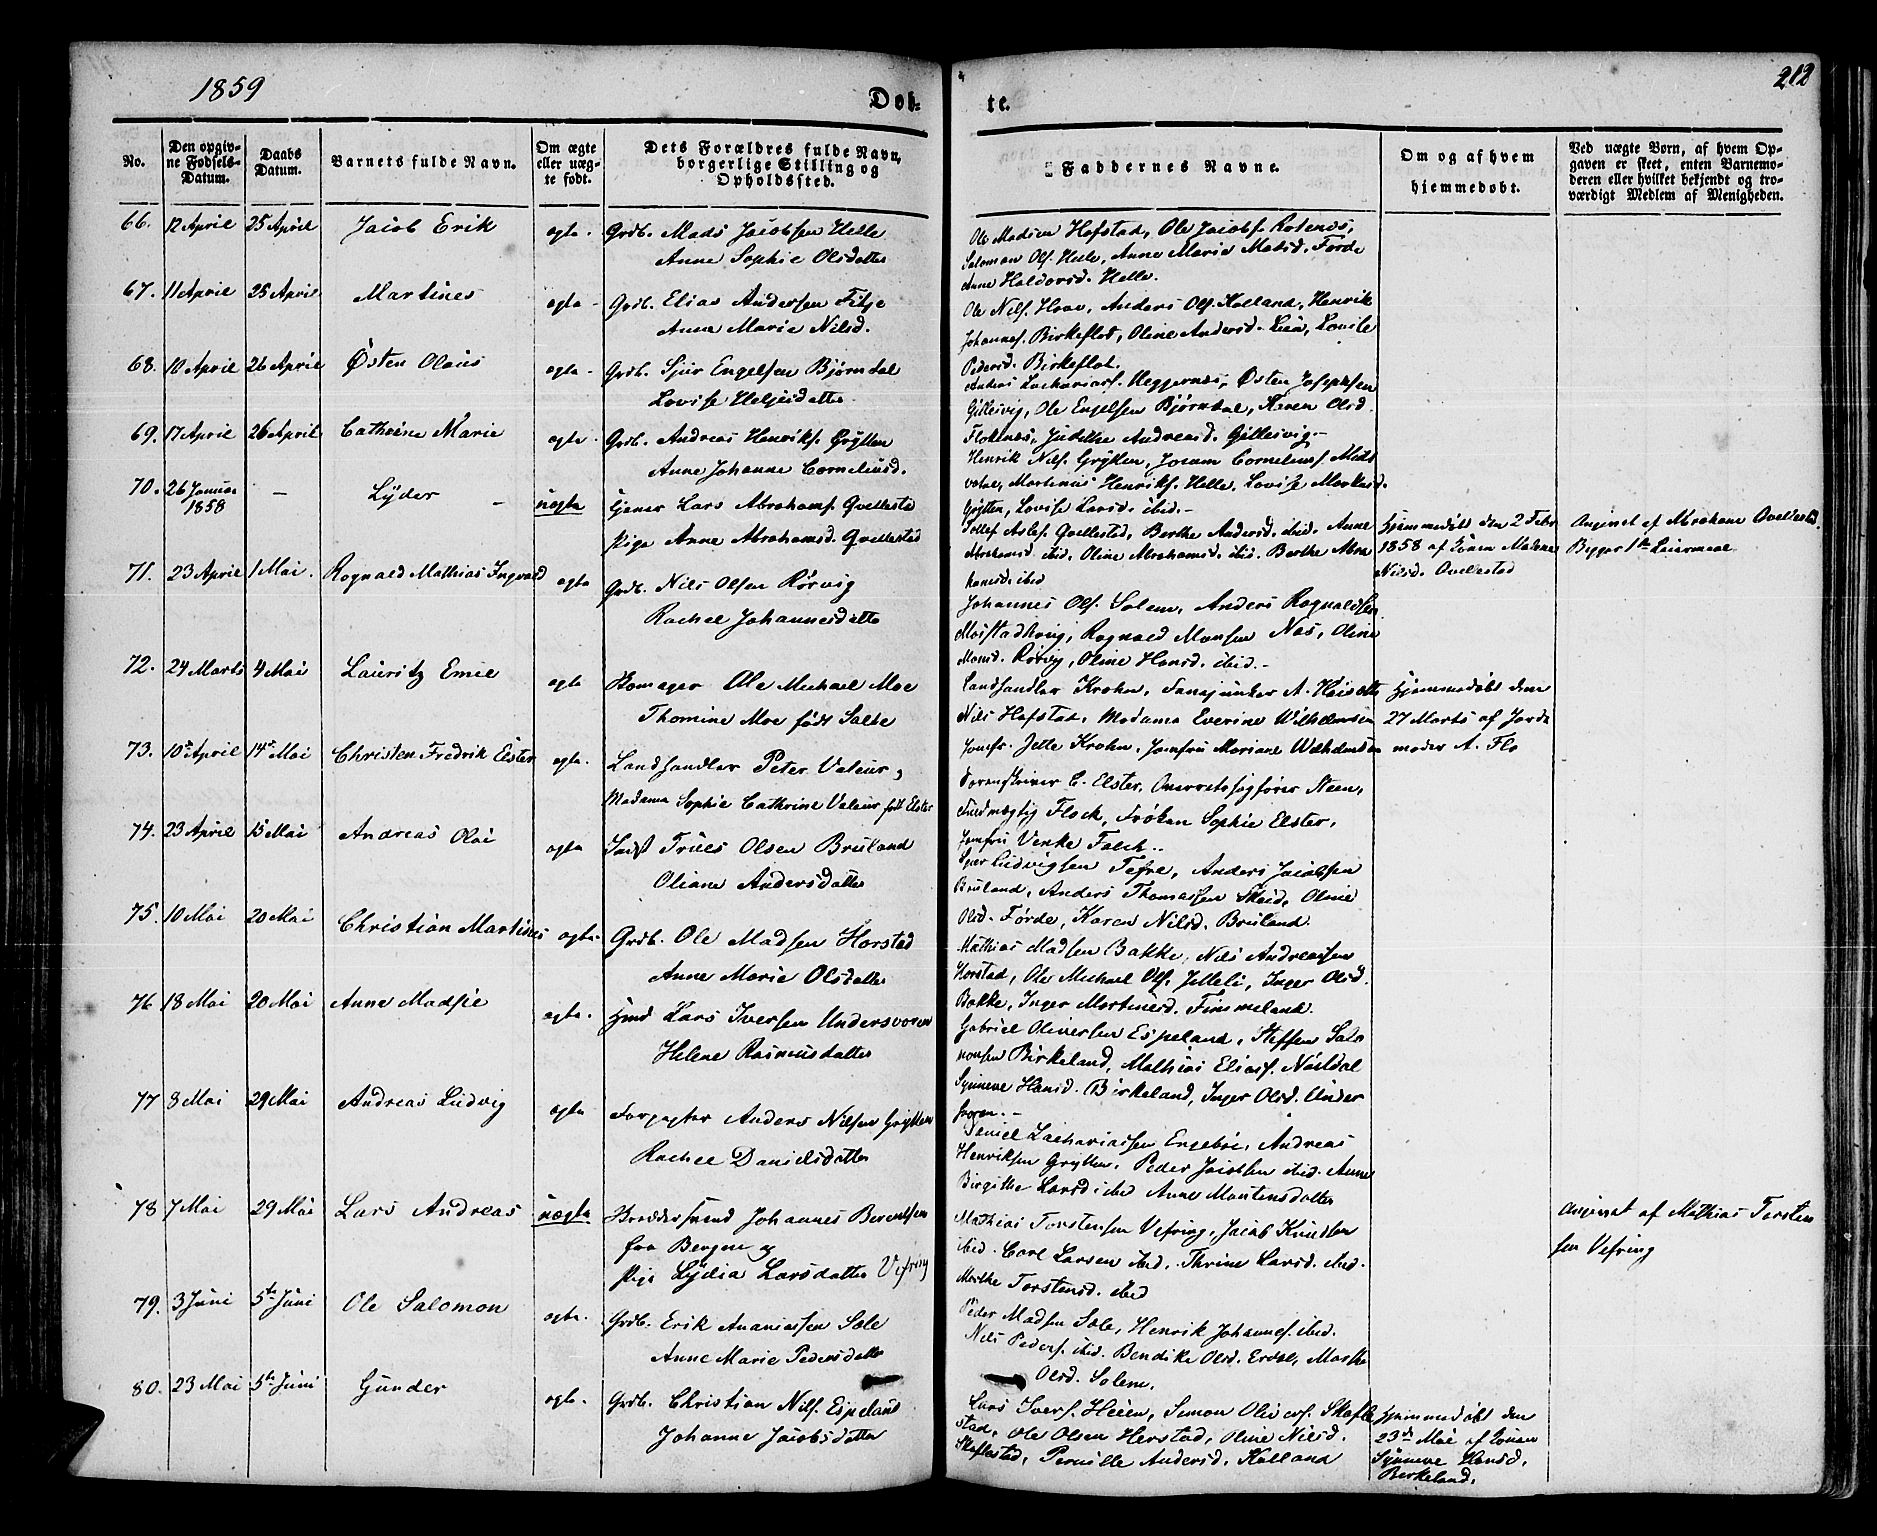 1859
Døb-
te.
212
No.
Den opgiv-
ne Fødsels-
Datum.
Daabs
Datum.
Barnets fulde Navn.
Om ægte
eller uæg-
te født.
Dets Forældres fulde Navn,
borgerlige Stilling og
Opholdssted.
Faddernes Navne.
Om og af hvem
hjemmedøbt.
Ved uægte Børn, af hvem Op-
gaven er skeet, enten Barnemo-
deren eller hvilket bekjendt og tro-
værdigt Medlem af Menigheden.
66. 12 April 25 April Jacob Erik ægte. Grdb. Mads Jacobsen Helle
Anne Sophie Olsdatter
Ole Madsen Hofstad, Ole Jacobs. Rotenes,
Salomon Ols. Helle, Anne Marie Madsd. Førde
Anne Haldorsd. Helle.
67. 11 April 25 April Martines ægte - Grdb. Elias Andersen Fitje
Anne Marie Nilsd.
Ole Nils. Hove, Anders Ols. Kolland, Henrik
Johannes. Birkeflot, Oline Andersd. Lien, Lovise
Pedersd. Birkeflot.
68. 10 April 26 April Østen Olaus ægte - Grdb. Sjur Engelsen Bjørndal
Lovise Heljesdatter
Andreas Zachariass. Heggernes, Østen Josephsen
Gillesvig, Ole Engelsen Bjørndal, Karen Olsd.
Flokenes, Judithe Andreasd. Gillesvig.-
69. 17 April 26 April Cathrine Marie ægte. Grdb. Andreas Henriks. Grytten
Anne Johanne Corneliusd.
Henrik Nils. Grytten, Joram Cornelius. Meds
vatne, Martinus Henriks. Helle, Lovise Markusd.
Grytten, Lovise Larsd. ibid.-
70. 26 Januar
1858
- Lyder - uægte tjener Lars Abrahams. Qvellestad
Pige Anne Abrahamsd. Qvellestad
Tollef Aslef. Qvellestad, Berthe Andersd. ibid. Anne
Abrahamsd. ibid, Oline Abrahamsd. ibid. Berthe Abra
hamsd. ibid
Hjemmedøbt den 2 Febr
1858 af Konen Madame
Nilsd. Qvellestad
Angivet af Abraham Qvellestad.
Begges 1ste Leiermaal
71. 23 April 1 Mai. Rognald Mathias Ingvald ægte Grdb. Nils Olsen Rørvig
Rachel Johannesdatte
Johannes Ols. Solem, Anders Rognaldsen
Mostadhoug, Rognald Monsen Nes, Oline
Monsd. Rørvig, Oline Hansd. ibid.-
72. 24 Marts 4 Mai Lauritz Emil ægte Bomager Ole Michael Moe
Thomine Moe født Salte
Landhandler Krohn, Fansjunker A. Heisotte
Nils Hofstad, Madame Everine Wilhelmsen
Jomfr. Jette Krohn, Jomfru Mariane Wilhelmsen
Hjemmedøbt den
27 Marts af Jorde
moder A. Flo
73. 10de April 14de Mai Christen Fredrik Elster ægte. Landhandler Peter Valeur,
Madame Sophie Cathrine Valeur født Elster
Sorenskriver C. Elster, Overretssagfører Steen,
Fuldmægtig Flock, Frøken Sophie Elster,
Jomfru Venke Falck..
74. 23 April 15 Mai Andreas Olai ægte Inds Truls Olsen Bruland
Oliane Andersdatter
Sjur Ludvigsen Tefre, Anders Jacobsen
Bruland, Anders Thomassen Skeid, Oline
Olsd. Førde, Karen Nilsd. Bruland.
75. 10 Mai 20 Mai Christian Martines ægte. Grdb. Ole Madsen Horstad
Anne Marie Olsdatter
Mathias Madsen Bakke, Nils Andreassen
Horstad, Ole Michael Ols. Jelleli, Inger Olsd.
Bakke, Inger Martinusd. Fimmeland.
76. 18 Mai 20 Mai Anne Madsie ægte. Hmd Lars Iversen Undersvoren
Helene Rasmusdatter
Gabriel Oliversen Espeland, Steffen Salo
monsen Birkeland, Mathias Elias. Nastdal
Synneve Hansd. Birkeland, Inger Olsd. Under
svoren.-
77 8 Mai 29 Mai Andreas Ludvig ægte Forpagter Anders Nilsen Grytten
Rachel Danielsdatter
Daniel Zachariassen Engebøe, Andreas
Henriksen Grytten, Peder Jacobsen ibid. Anne
Birgitte Larsd ibid Anne Mortensdatter
78 7 Mai 29 Mai Lars Andreas uægte Kræddersvend Johannes Berentsen
fra Bergen og
Pige Lydia Larsdatter Vefring
Mathias Torstensen Vefring, Jacob Knudsen
ibid. Carl Larsen ibid. Thrine Larsd. ibid.
Marthe Torstensd. ibid
Angivet af Mathias Torsten
sen Vefring
79. 3 Juni 5te Juni Ole Salomon ægte. Grdb. Erik Ananiassen Sæle
Anne Marie Pedersdatter
Peder Madsen Sæle, Henrik Johannes. ibid.
Nils Peders. ibid. Bendike Olsd. Erdal, Marthe
Olsd. Solem.
80. 23 Mai 5te Juni Gunder ægte. Grdb. Christian Nils. Espeland
Johanne Jacobsdatter
Lars Ivers. Heien, Simon Olivers. Skafle
stad, Ole Olsen Herstad, Oline Nilsd.
Skaflestad, Pernille Andersd. Kalland
Hjemmedøbt den
23de Mai af Konen
Synneve Hansd.
Birkeland.